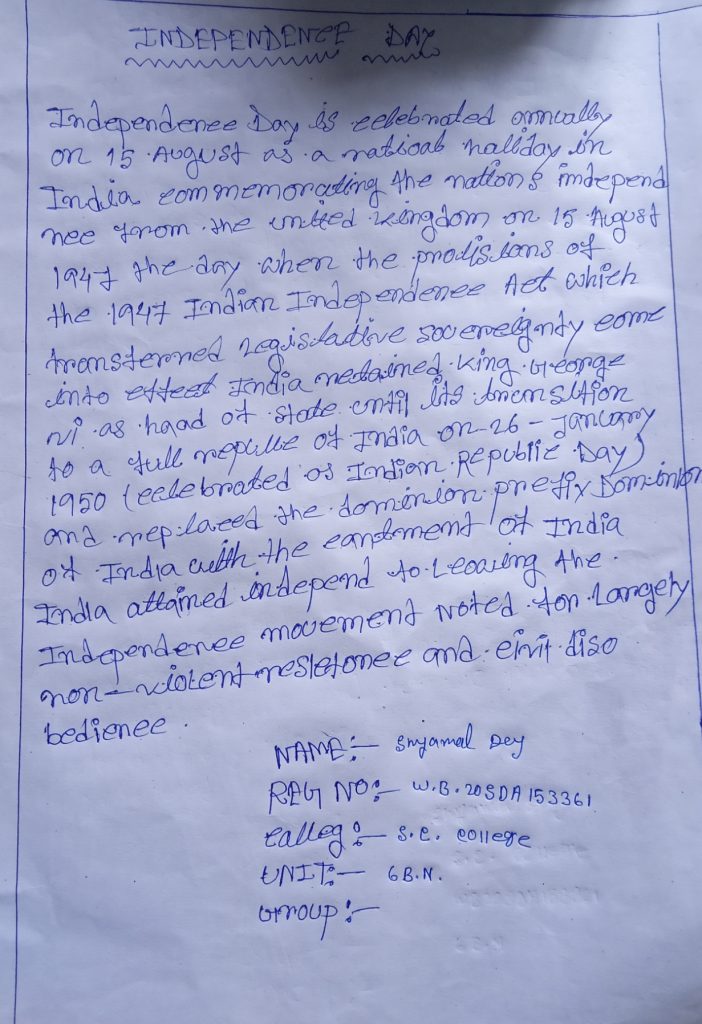 INDEPENDENCE DAY
Independence Day is celebrated annually
on 15 August as a natioal haliday in
India commemorating the nation's independ
nce from the united kingdom on 15 August
1947 the day when the provisions of
the 1947 Indian Independence Act which
transferred legislative sovereignty come
into effect India retained King George
vi as haad of state until its transition
to a full republic of India on 26 - January
1950 (celebrated as Indian Republic Day)
and replaced the dominion prefix Dominion
of India with the of India
India attained independ to Leaving the
Independence movement Noted for Largely
non-violent and civil diso
bedience.
NAME:- Shyamal Dey
REG NO:- W.B.20SDA153361
Calleg:- S.C. College
UNIT:- 6B.N.
Group:-